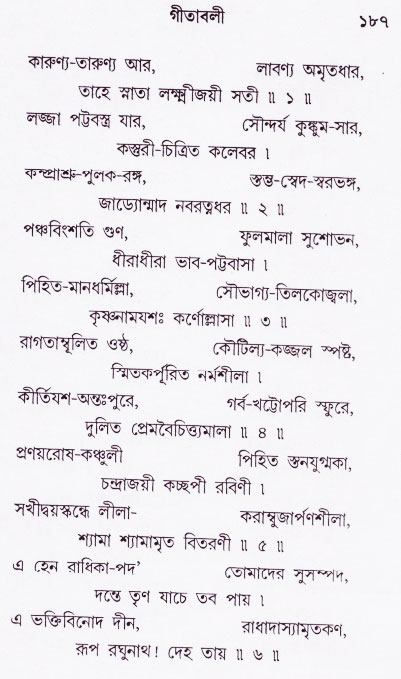 গীতাবলী ১৮৭
কারুণ্য-তারুণ্য আর, লাবণ্য অমৃতধার,
তাহে স্নাতা লক্ষ্মীজয়ী সতী ॥ ১ ॥
লজ্জা পট্টবস্ত্র যার, সৌন্দর্য কুঙ্কুম-সার,
কস্তুরী-চিত্রিত কলেবর ।
কম্পাশ্রু-পুলক-রঙ্গ, স্তম্ভ-স্বেদ-স্বরভঙ্গ,
জাড্যোন্মাদ নবরত্নধর ॥ ২ ॥
পঞ্চবিংশতি গুণ, ফুলমালা সুশোভন,
ধীরাধীরা ভাব-পট্টবাসা ।
পিহিত-মানধর্মিল্লা, সৌভাগ্য-তিলকোজ্বলা,
কৃষ্ণনামযশঃ কর্ণোল্লাসা ॥ ৩ ॥
রাগতাম্বূলিত ওষ্ঠ, কৌটিল্য-কজ্জল স্পষ্ট,
স্মিতকর্পূরিত নর্মশীলা ।
কীর্তিযশ-অন্তঃপুরে, গর্ব-খট্টোপরি স্ফুরে,
দুলিত প্রেমবৈচিত্ত্যমালা ॥ ৪ ॥
প্রণয়রোষ-কঞ্চুলী পিহিত স্তনযুগ্মকা,
চন্দ্রাজয়ী কচ্ছপী রবিণী ।
সখীদ্বয়স্কন্ধে লীলা- করাম্বুজার্পণশীলা,
শ্যামা শ্যামামৃত বিতরণী ॥ ৫ ॥
এ হেন রাধিকা-পদ' তোমাদের সুসম্পদ,
দন্তে তৃণ যাচে তব পায় ।
এ ভক্তিবিনোদ দীন, রাধাদাস্যামৃতকণ,
রূপ রঘুনাথ! দেহ তায় ॥ ৬ ॥